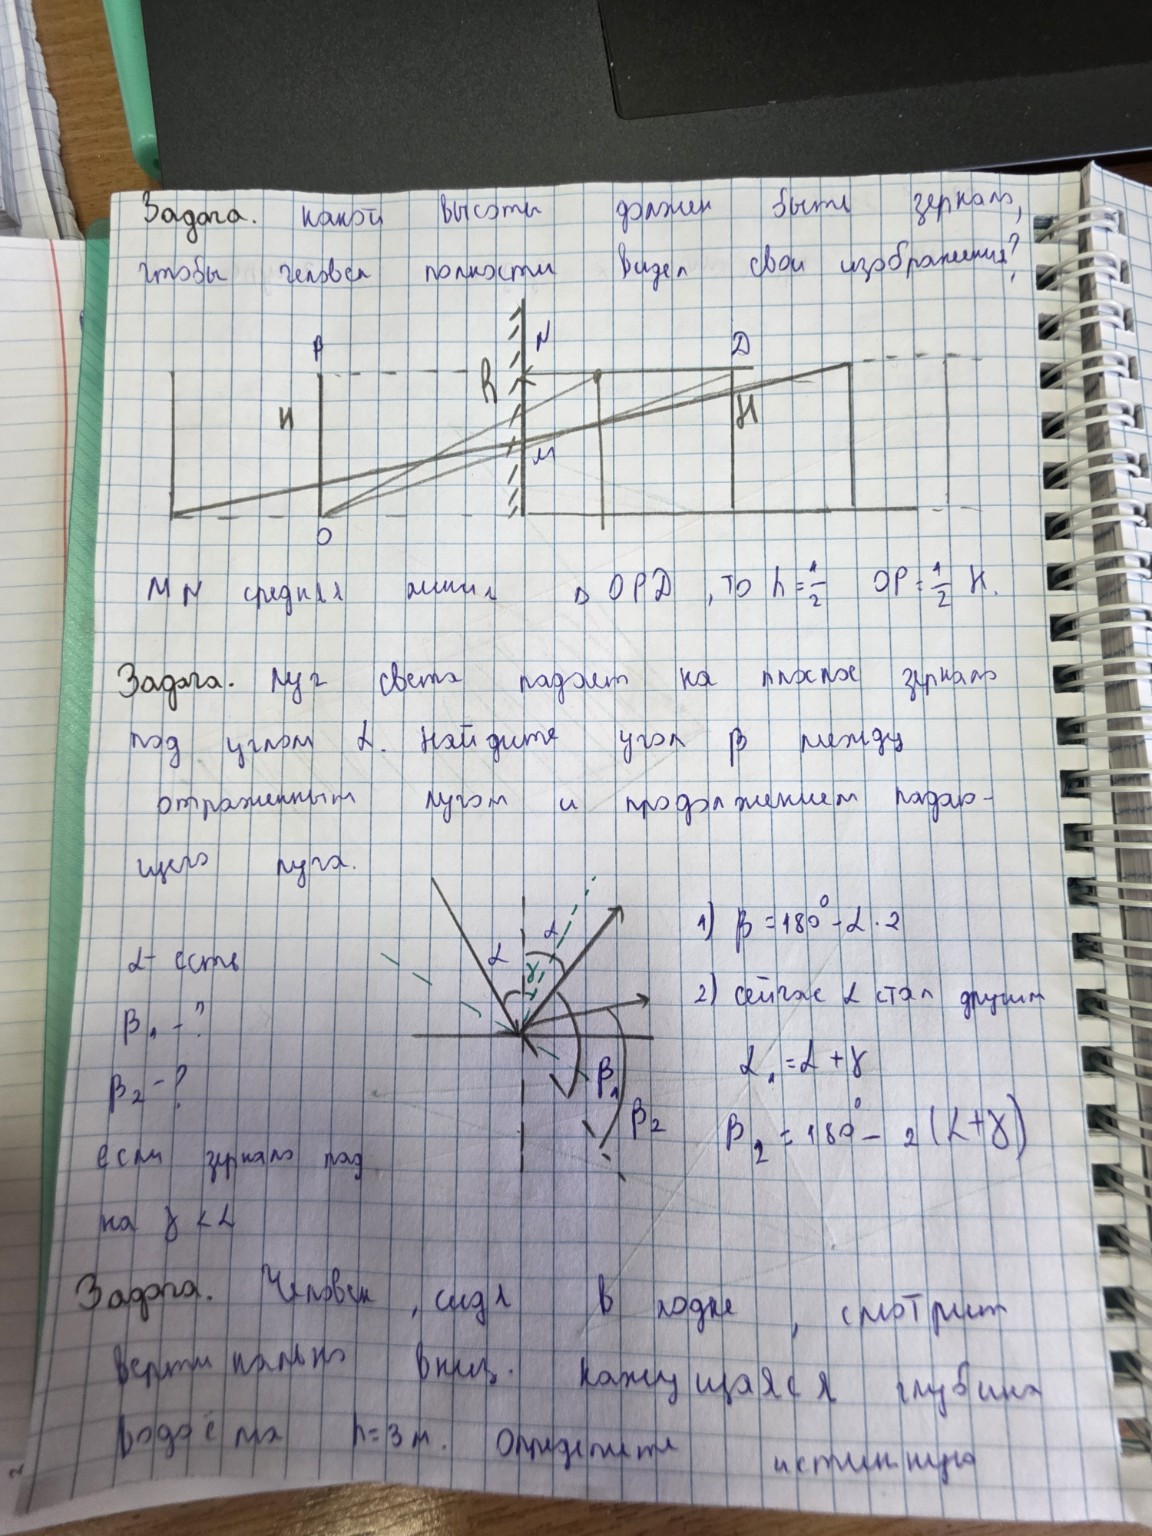 Задача. какой высоты должен быть зеркало,
чтобы человек полности видел свои изображения?
N
P
D
h
H
H
M
O
MN средняя линия в OPD, то h = 1/2 OP = 1/2 H.
Задача. Луч света падает на плоское зеркало
под углом α. Найдите угол β между
отраженным лучом и продолжением падаю-
щего луча.
α γ α
β1
β2
α - есть
β1 - ?
β2 - ?
если зеркало пад
на γ < α
1) β = 180° - α · 2
2) сейчас α стал другим
α1 = α + γ
β2 = 180° - 2(α+γ)
Задача. Человек, сидя в лодке, смотрит
вертикально вниз. Кажущаяся глубина
водоёма h = 3 м. Определите истинную